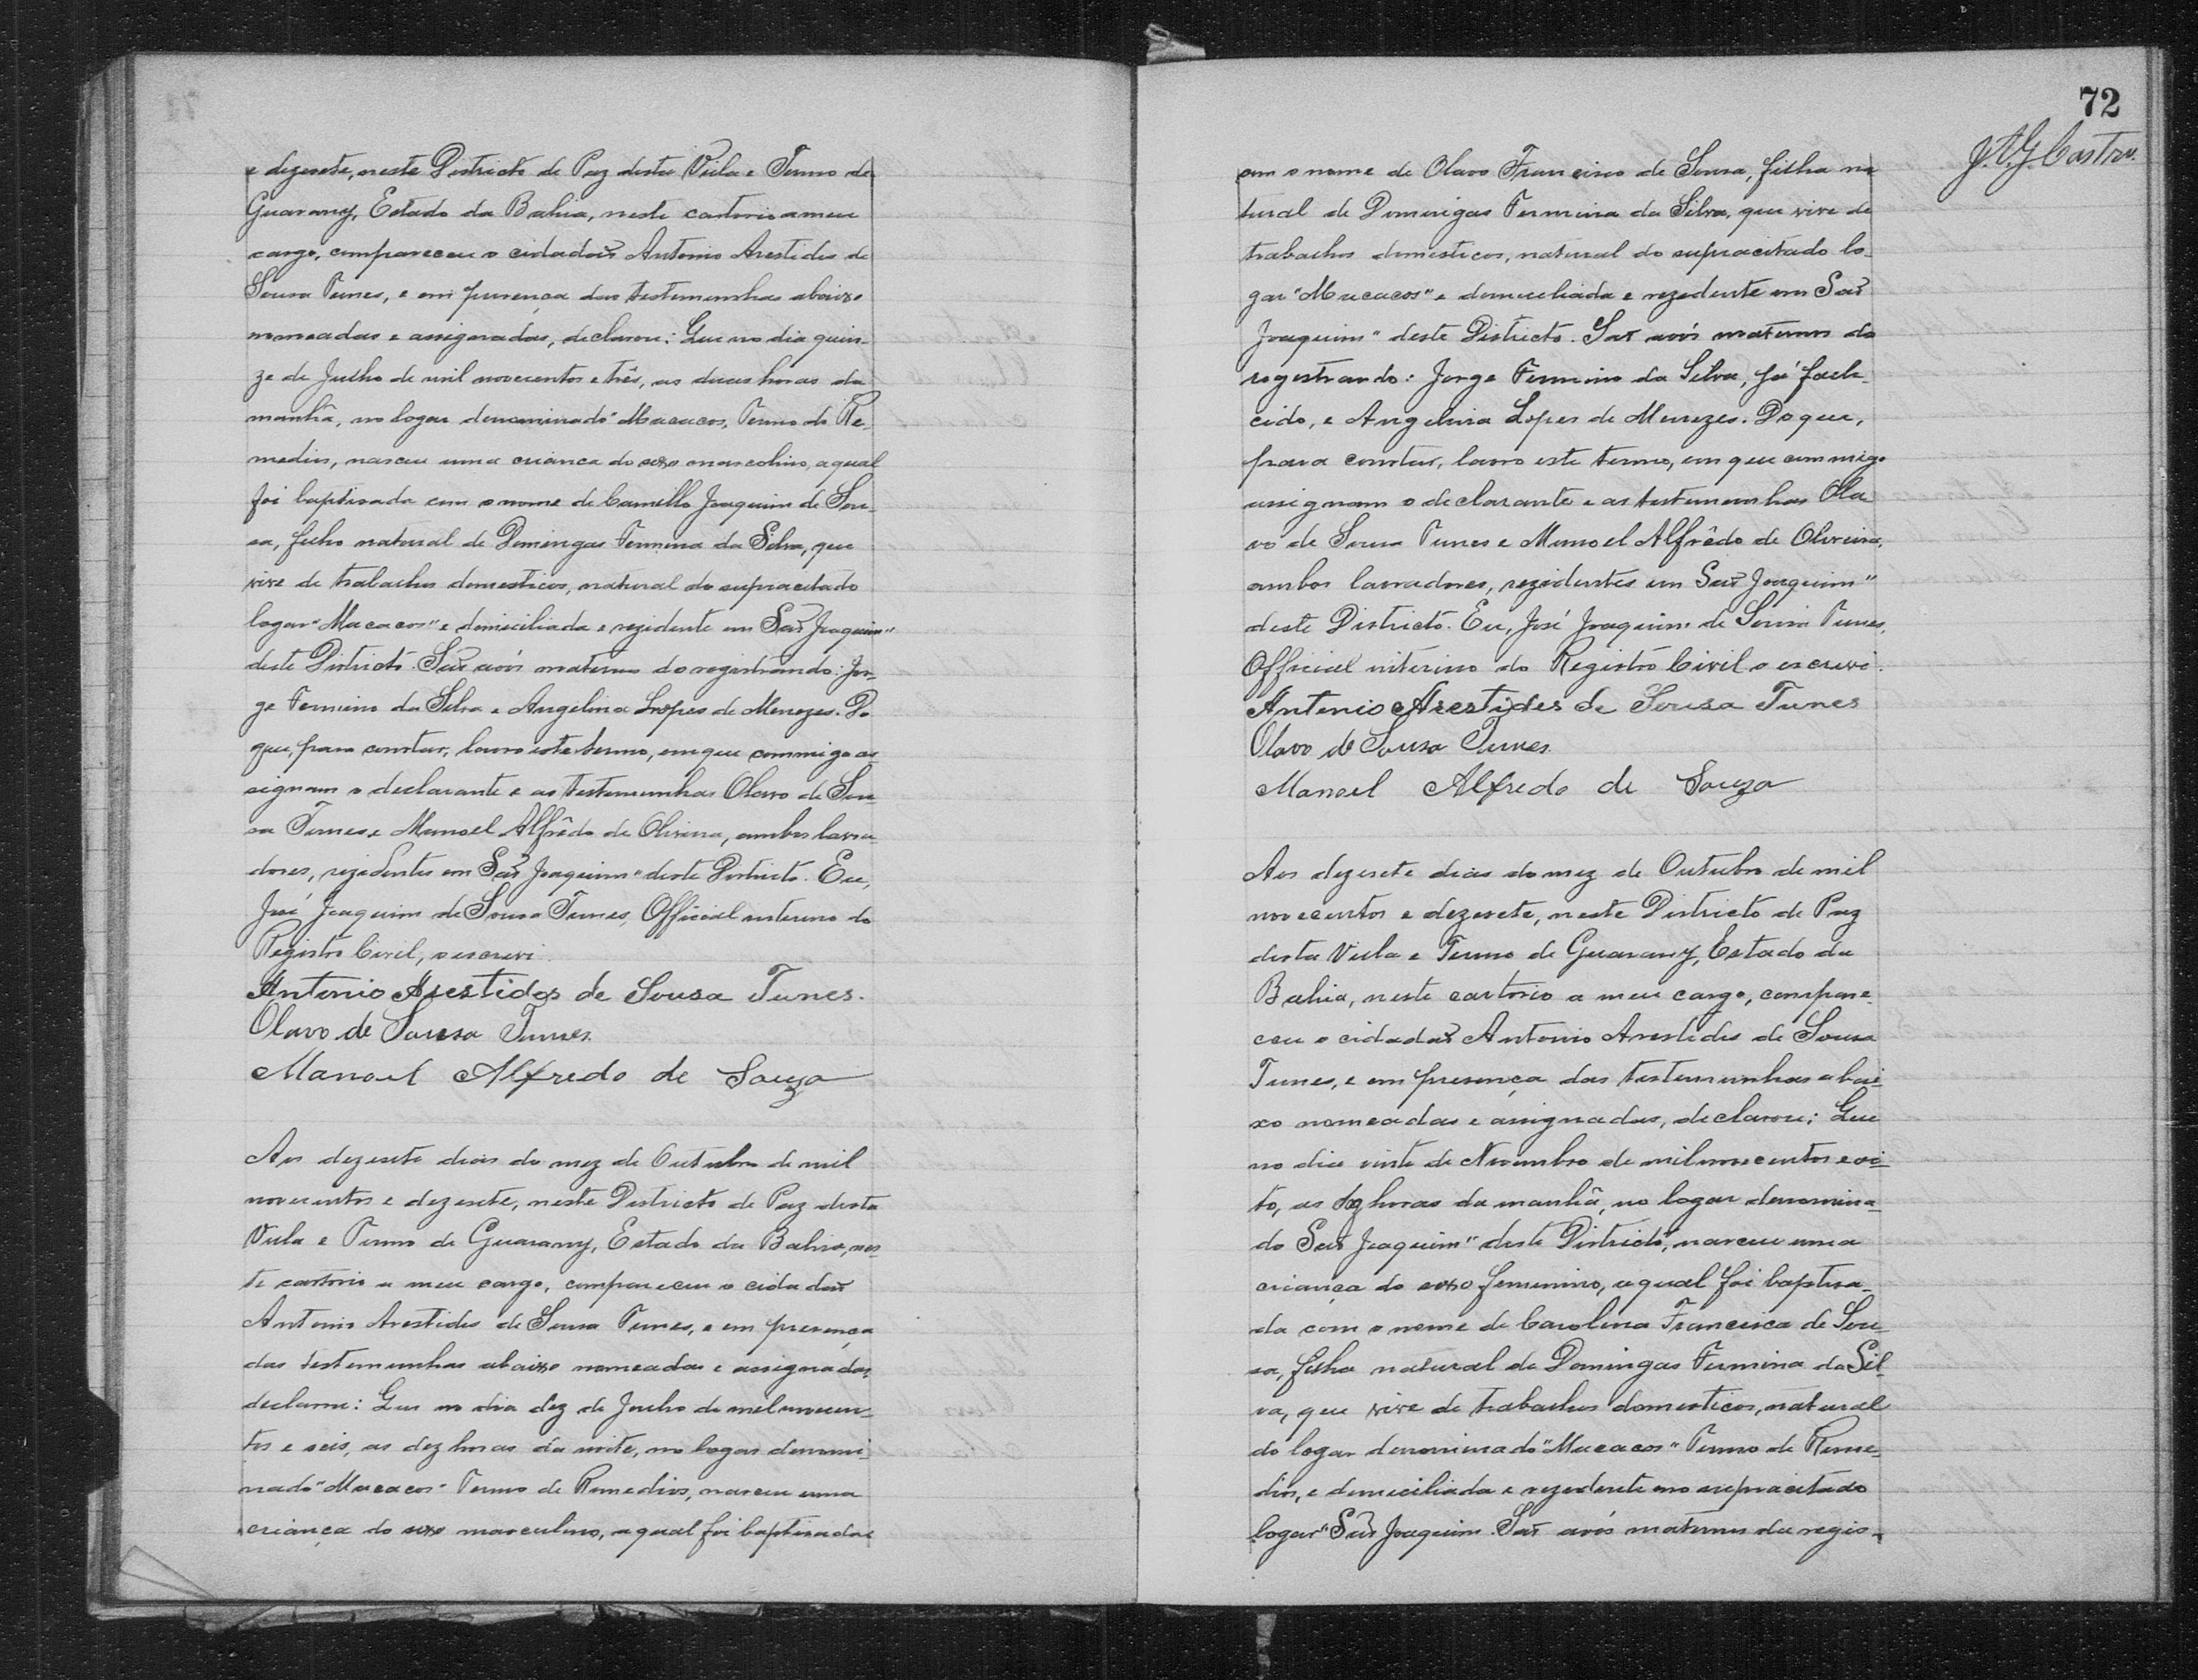 e dezesete, neste Districto de Paz desta Villa e Termo de
Guarany, Estado da Bahia, neste cartorio a meu
cargo, compareceu o cidadaõ Antonio Arestides de
Sousa Tunes, e em presença das testemunhas abaixo
nomeadas e assignadas, declarou: Que no dia quin-
ze de Julho de mil novecentos e três, as duas horas da
manhã, no logar denominado "Macacos, Termo do Re-
medios, nasceu uma criança do sexo mascolino, a qual
foi baptisada com o nome de Camillo Joaquim de Sou-
sa, filho natural de Domingas Fermina da Silva, que
vive de trabalhos domesticos, natural do supracitado
logar "Macacos" e domiciliada e rezidente em Saõ Joaquim"
deste Districto. Saõ avós maternos do registrando: Jor-
ge Fermino da Silva e Angelina Lopes de Menezes. Do
que, para constar, lavro este termo, em que commigo as-
signam o declarante e as testemunhas Olavo de Sou-
sa Tunes e Manoel Alfrêdo de Oliveira, ambos lavra-
dores, rezidentes em Saõ Joaquim" deste Districto. Eu,
José Joaquim de Sousa Tunes, Official interino do
Registro Civil, o escrevi.
Antonio Arestides de Sousa Tunes.
Olavo de Sousa Tunes.
Manoel Alfredo de Souza
Aos dezesete dias do mez de Outubro de mil
novecentos e dezesete, neste Districto de Paz desta
Villa e Termo de Guarany, Estado da Bahia, nes-
te cartorio a meu cargo, compareceu o cidadaõ
Antonio Arestides de Sousa Tunes, e em presença
das testemunhas abaixo nomeadas e assignadas,
declarou: Que no dia dez de Junho de mil novecen-
tos e seis, as dez horas da noite, no logar denomi-
nado "Macacos" Termo de Remedios, nasceu uma
criança do sexo masculino, a qual foi baptisada
72
J. A. G. Castro.
com o nome de Olavo Francisco de Sousa, filho na
tural de Domingas Fermina da Silva, que vive de
trabalhos domesticos, natural do supracitado lo-
gar "Macacos" e domiciliada e rezidente em Saõ
Joaquim" deste Districto. Saõ avós maternos do
registrando: Jorge Fermino da Silva, já falle-
cido, e Angelina Lopes de Menezes. Do que,
para constar, lavro este termo, em que commigo
assignam o declarante e as testemunhas Ola
vo de Sousa Tunes e Manoel Alfrêdo de Oliveira,
ambos lavradores, rezidentes em Saõ Joaquim"
deste Districto. Eu, José Joaquim de Sousa Tunes,
Official interino do Registro Civil o escrevi.
Antonio Arestides de Sousa Tunes
Olavo de Sousa Tunes.
Manoel Alfredo de Souza
Aos dezesete dias do mez de Outubro de mil
novecentos e dezesete, neste Districto de Paz
desta Villa e Termo de Guarany, Estado da
Bahia, neste cartorio a meu cargo, compare-
ceu o cidadaõ Antonio Arestides de Sousa
Tunes, e em presença das testemunhas abai-
xo nomeadas e assignadas, declarou: Que
no dia vinte de Novembro de mil novecentos e oi-
to, as dez horas da manhã, no logar denomina-
do Saõ Joaquim" deste Districto, nasceu uma
criança do sexo femenino, a qual foi baptisa-
da com o nome de Carolina Francisca de Sou-
sa, filha natural de Domingas Fermina da Sil-
va, que vive de trabalhos domesticos, natural
do logar denominado "Macacos" Termo de Reme-
dios, e domiciliada e rezidente no supracitado
logar "Saõ Joaquim. Saõ avós maternos da regis-